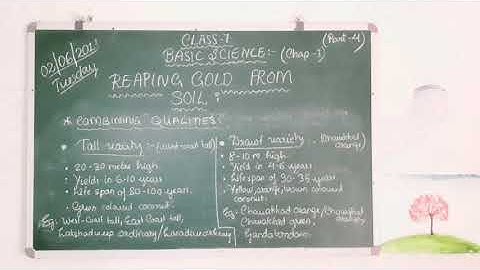 02/06/202
Tuesday
CLASS-7 (Part-4)
BASIC SCIENCE:- (Chap-1)
REAPING GOLD FROM
SOIL:
* COMBINING QUALITIES:
• Tall variety :- (West-coast tall)
• 20-30 meter high
• Yield in 6-10 years
• Life span of 80-100 years.
• Green coloured coconut.
Eg: West-Coast tall, East Coast tall,
Lakshadweep ordinary/
• Dwarf variety (Chowakhad orange)
• 8-10 m. high
• Yield in 4-6 years
• Life span of 30-35 years.
• Yellow, orange, brown coloured
coconut.
Eg: Chawakhad orange/
Chowakhad green,
Gandabondam.